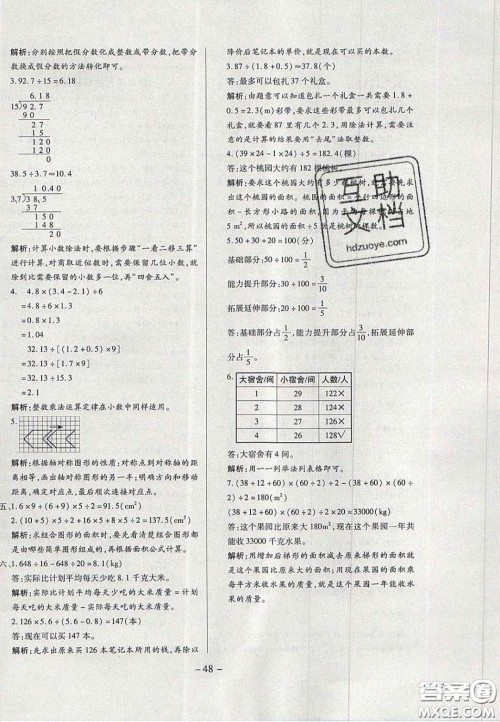 解析:分别按照把假分数化成整数或带分数,把带分
数换成假分数的方法转化即可。
3.92.7÷15=6.18
6.18
15)92.7
90
27
15
120
120
0
38.5÷3.7≈10.40
10.40
3.7)38.5
37
150
148
20
解析:计算小数除法时,要根据步骤“一看二移三算”
进行计算,对商进行取近似数时,需要保留几位小数,就
比需要保留的小数多一位,再“四舍五入”。
4. 4.8×(3.4-2.1)÷6
=4.8÷6×1.3
=0.8×1.3
=1.04
32.13÷[(1.2+0.5)×9]
=32.13÷[1.7×9]
=32.13÷15.3
=2.1
解析:整数乘法运算定律在小数中同样适用。
5.
解析:根据轴对称图形的性质,对称点到对称轴的距离
相等,画出轴对称图形的另一半;明确方向和移动
距离,确定对应点,最后顺次连接对应点。
五、1.6×9+(6+9)×5÷2=91.5(cm²)
2.(10+5)×10÷2-5×6÷2=60(cm²)
解析:求组合图形的面积,要先看清楚组合图形都是
由哪些简单图形组成的,再根据面积公式计算。
六、1.648÷16-648÷20=8.1(kg)
答:实际比计划平均每天少吃 8.1 千克大米。
解析:实际比计划平均每天少吃的大米质量=计划平
均每天吃的大米质量-实际平均每天吃的大米质量。
2.126×3.5÷(3.5-0.5)=147(本)
答:现在可以买 147 本。
解析:先求出原来买 126 本笔记本所用的钱,再除以
降价后笔记本的单价,就是现在可以买的本数。
3.87÷(1.8+0.5)≈37(个)
答:最多可以包扎 37 个礼盒。
解析:由题意可以知道包扎一个礼盒一共需要(1.8+
0.5=2.3)(米)彩带,要求这些彩带最多可以包扎几个
礼盒,就要看87 里有几个 2.3,用除法计算,需要注
意的是计算的结果要用“去尾”法取整数。
4.(39×24-1×24)÷5=182.4(棵)
答:这个桃园大约有 182 棵桃树。
5.50+30+20=100(分)
基础部分:50÷100=1/2
能力提升部分:30÷100=3/10
拓展延伸部分:20÷100=1/5
答:基础部分占1/2,能力提升部分占3/10,拓展延伸部
分占1/5。
6.
大宿舍/间 小宿舍/间 人数/人
1 29 122×
2 28 124×
3 27 126×
4 26 128√
答:大宿舍有 4 间。
解析:用一一列举法列表格即可。
7.(38+12+12)×(60÷2)÷2-(38+12)×60÷2=
(38+12+60)×(60÷2)÷2×20=33000(kg)
答:这个果园比原来大 180m²,这个果园一年共
能收 33000 千克水果。
解析:用增加后梯形的面积减去原来梯形的面积就
是这个果园比原来大的面积,用现在果园的面积乘
每平方米收水果的质量就是这个果园一年共能收
水果的质量。
互助
文档
hdzuoye.com
-48-
答案圈
MXQE.COM